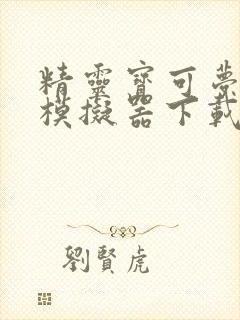 精靈寶可夢
模擬器下載
劉賢虎